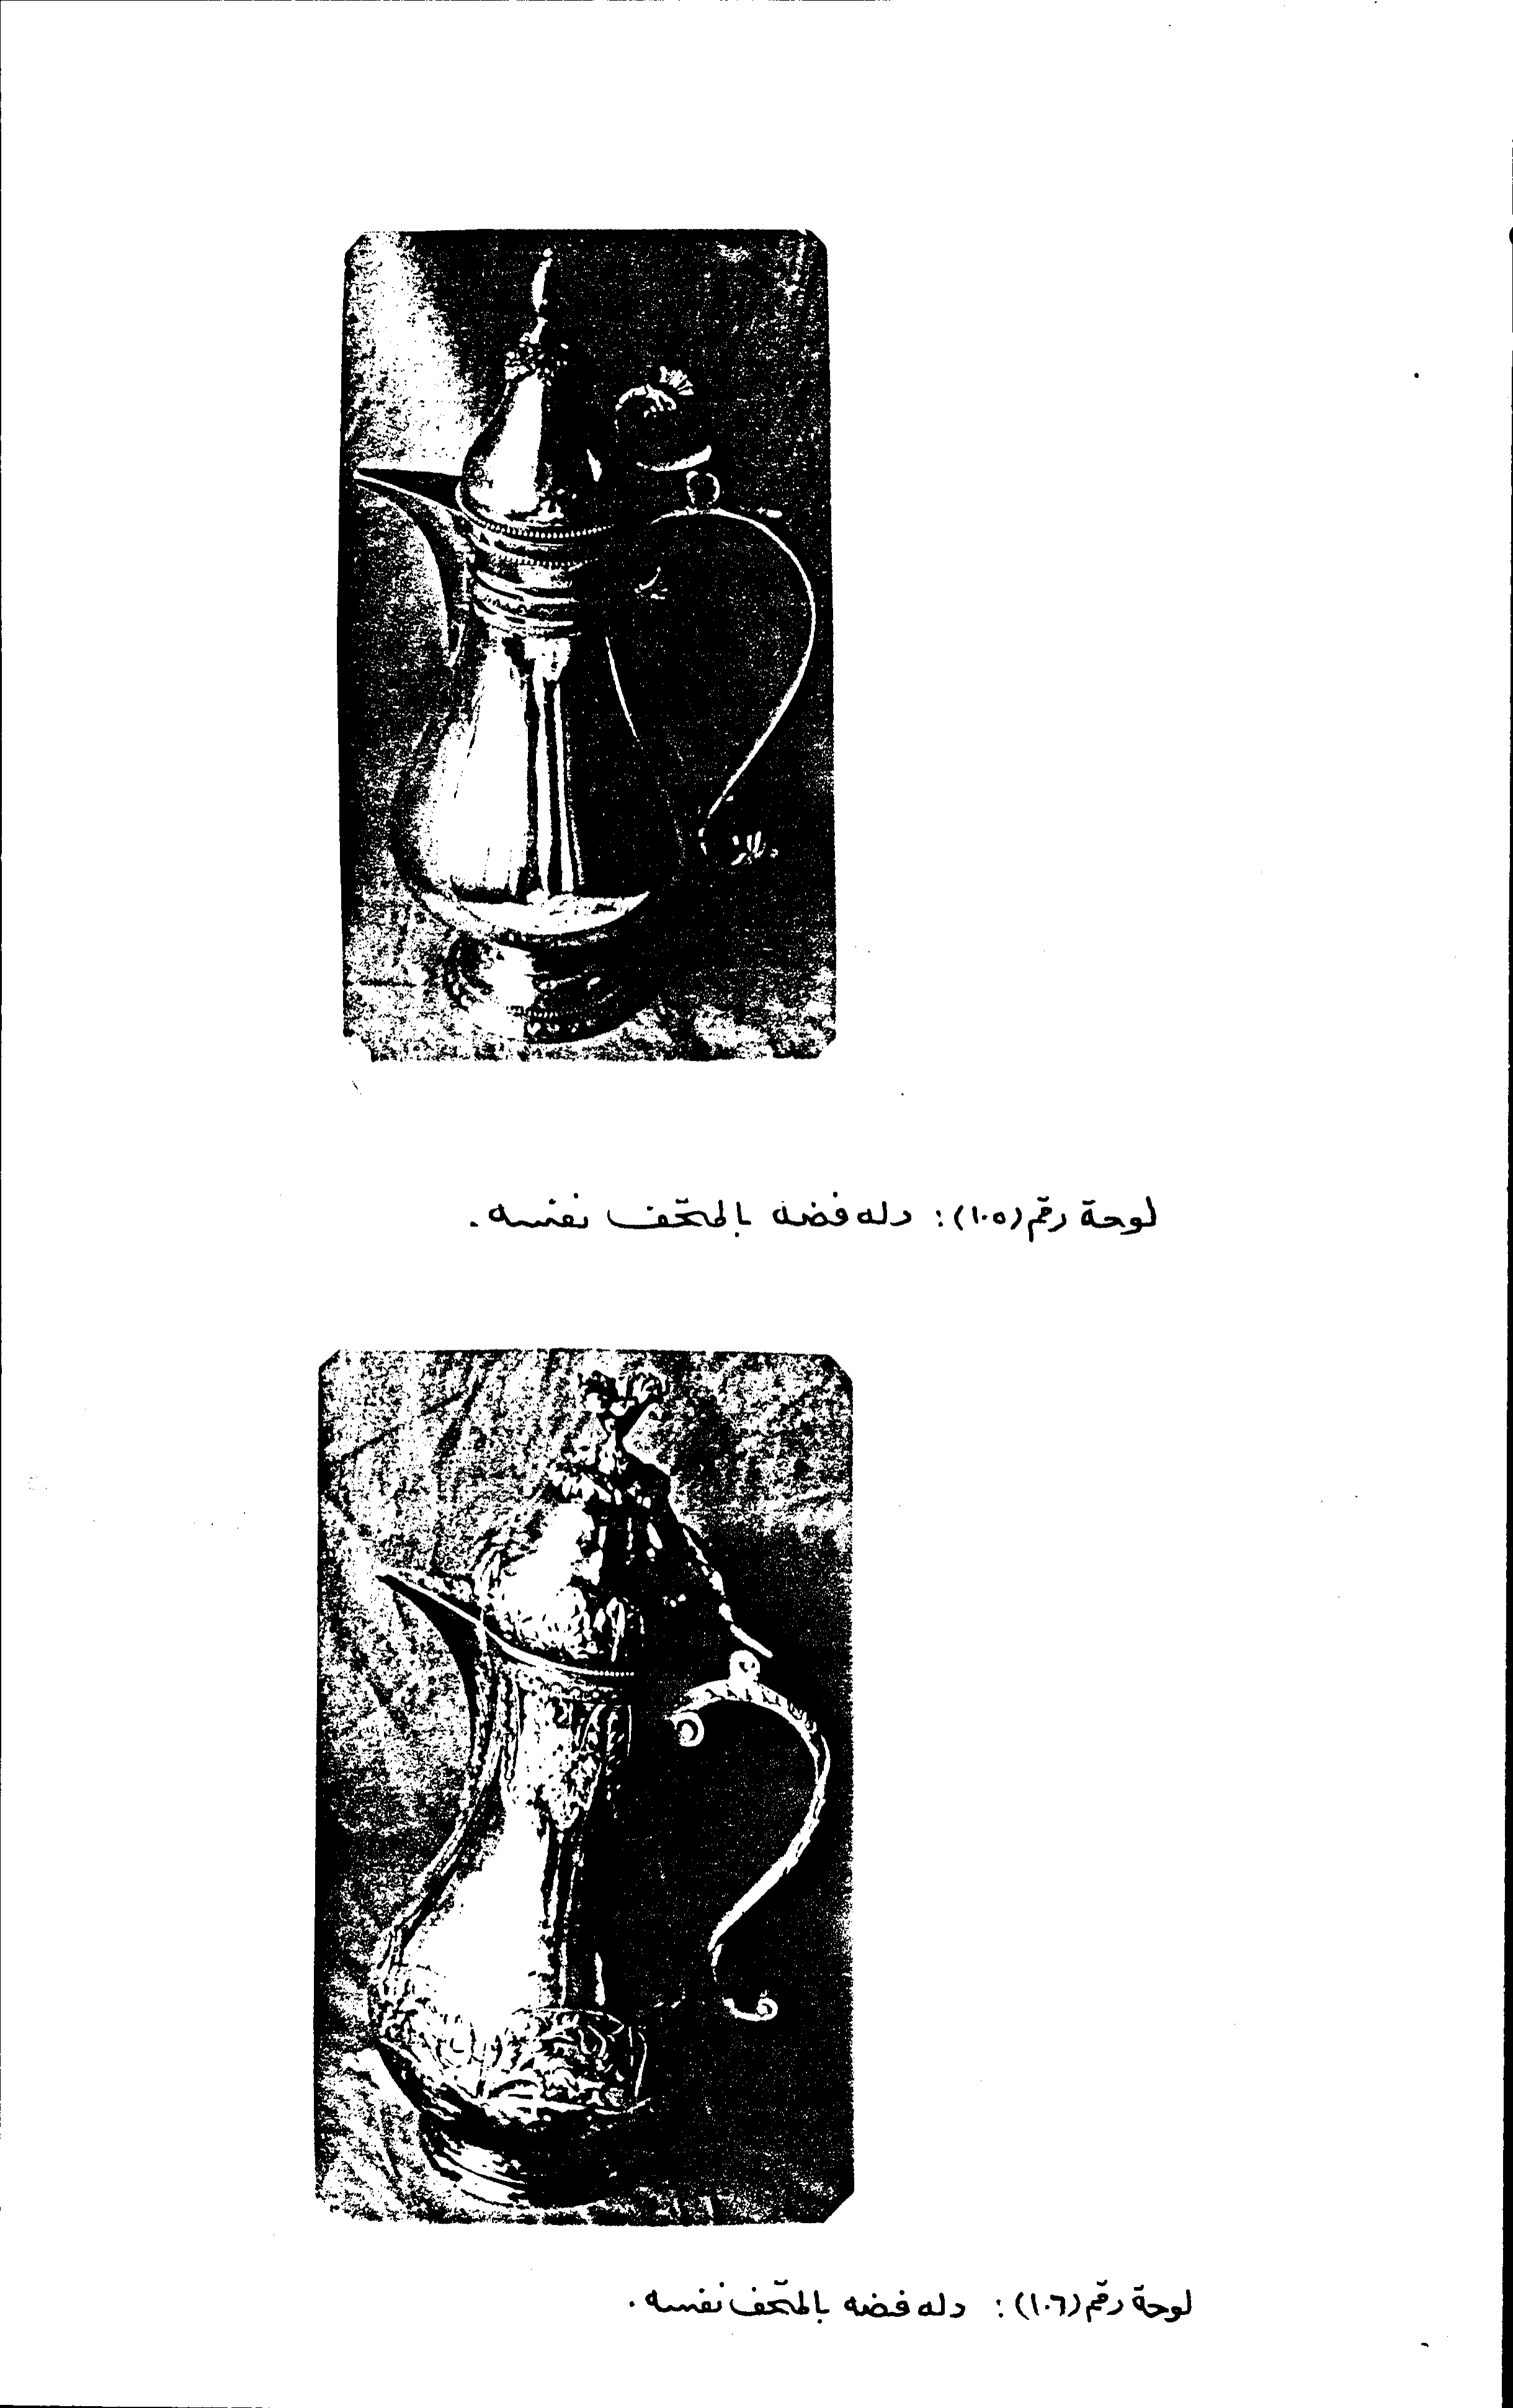 لوحة رقم (١٠٥) : دله فضه بالمتحف نفسه .
لوحة رقم (١٠٦) : دله فضه بالمتحف نفسه .